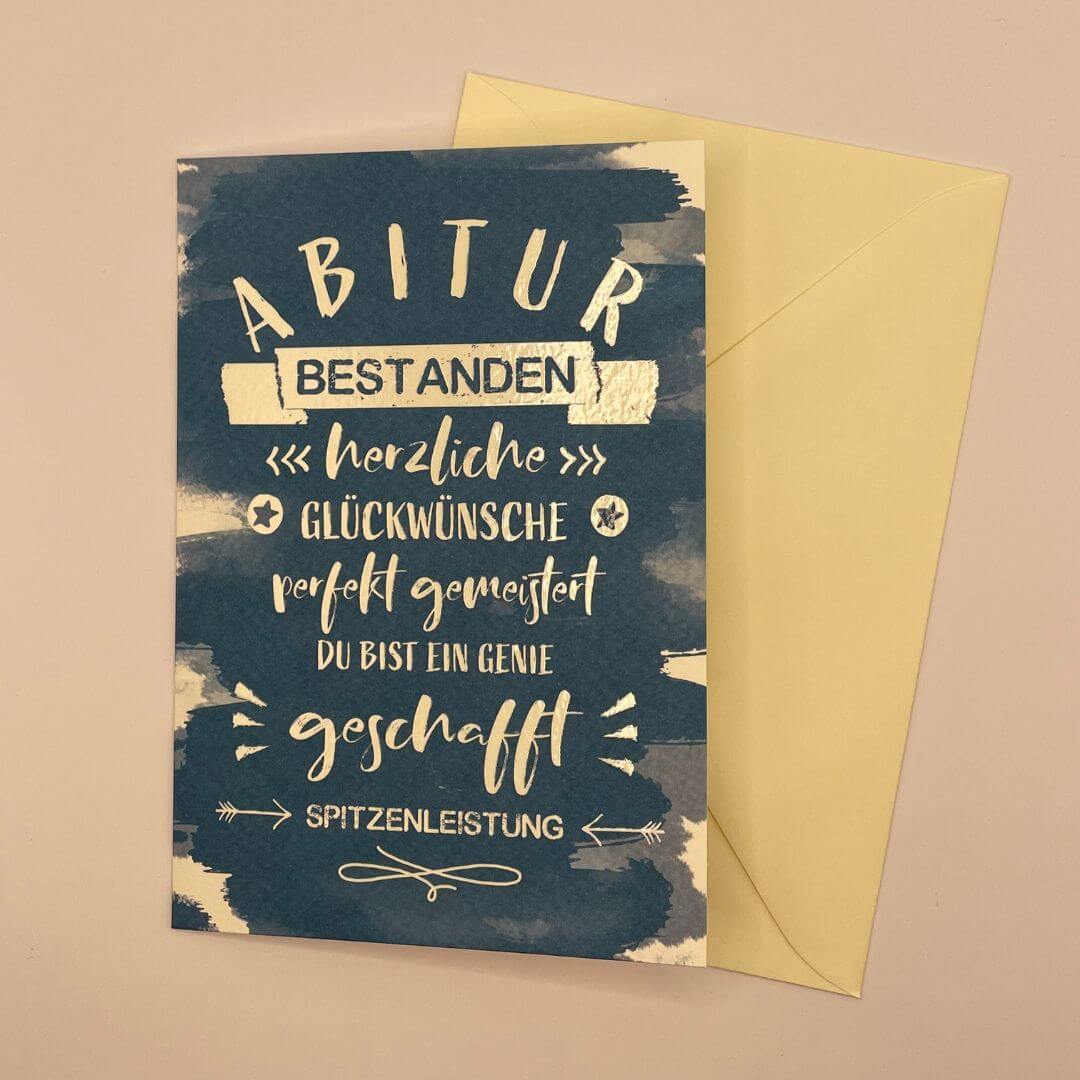 ABITUR
BESTANDEN
herzliche
GLÜCKWÜNSCHE
perfekt gemeistert
DU BIST EIN GENIE
geschafft
SPITZENLEISTUNG